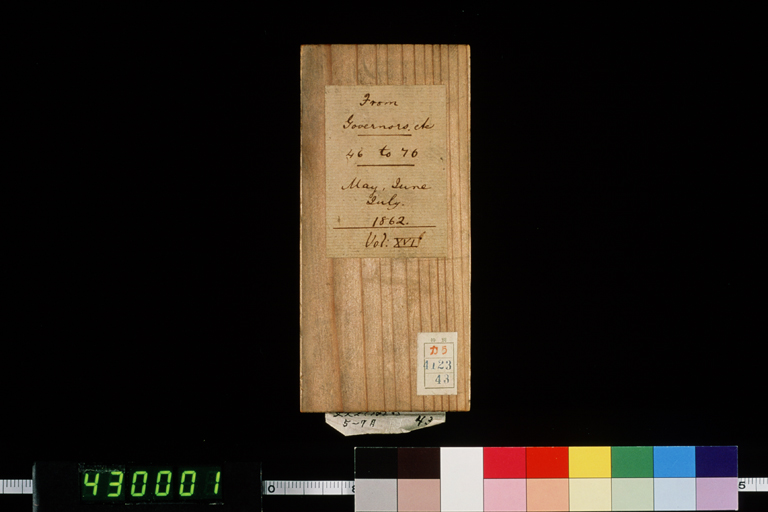 From
Governors, etc
46 to 76
May, June
July.
1862.
Vol: XVI
カ5
4123
43
5-7月
43
430001
0
5